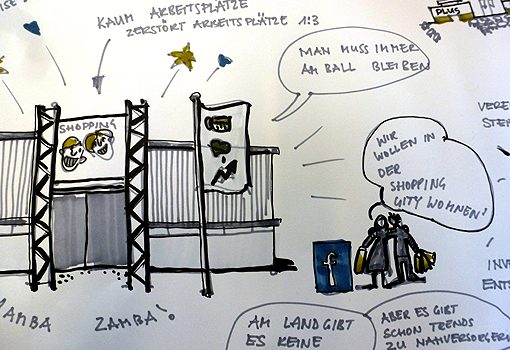 KAUM ARBEITSPLÄTZE
ZERSTÖRT ARBEITSPLÄTZE 1:3
PLUS
MAN MUSS IMMER
AM BALL BLEIBEN
SHOPPING
WIR
WOLLEN IN
DER
SHOPPING
CITY WOHNEN!
f
ZAMBA!
AM LAND GIBT
ES KEINE
ABER ES GIBT
SCHON TRENDS
ZU NAHVERSORGERN